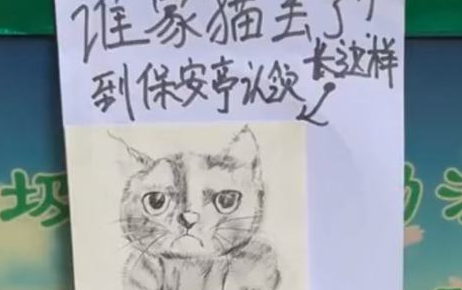 谁家猫丢了
到保安亭认领
长这样
圾